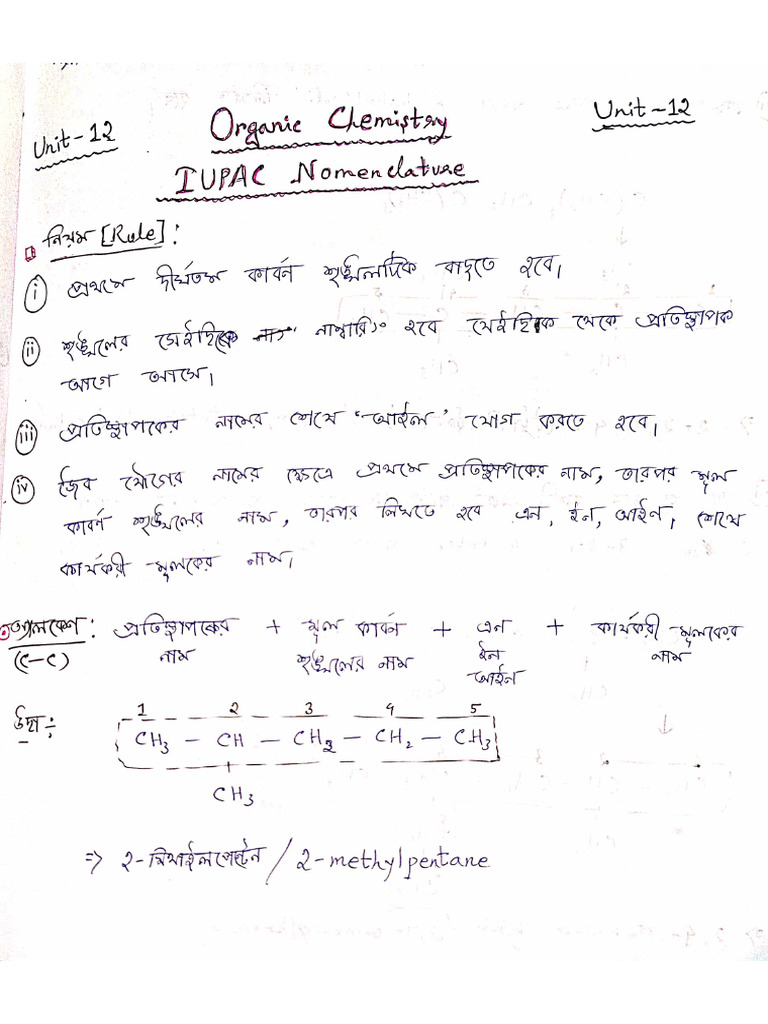 Unit-12
Organic Chemistry
Unit-12
IUPAC Nomenclature
নিয়ম [Rule]:
i প্রথমে দীর্ঘতম কার্বন শৃঙ্খলটিকে বাছতে হবে।
ii শৃঙ্খলের সেইদিকে নাম্বারিং হবে যেইদিক থেকে প্রতিস্থাপক
আগে আসে।
iii প্রতিস্থাপকের নামের শেষে 'আইল' যোগ করতে হবে।
iv জৈব যৌগের নামের ক্ষেত্রে প্রথমে প্রতিস্থাপকের নাম, তারপর মূল
কার্বন শৃঙ্খলের নাম, তারপর লিখতে হবে এন, ইন, আইন, শেষে
কার্যকরী মূলকের নাম।
অ্যালকেন: প্রতিস্থাপকের + মূল কার্বন + এন + কার্যকরী মূলকের
(C-C) নাম শৃঙ্খলের নাম ইন নাম
আইন
উদাঃ 1 2 3 4 5
CH3 - CH - CH2 - CH2 - CH3
CH3
=> ২-মিথাইলপেন্টেন / 2-methylpentane